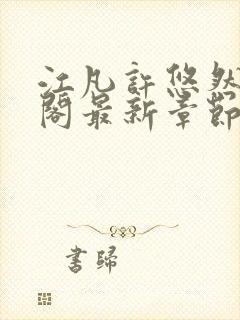 江凡許悠然
閣最新章節
書歸